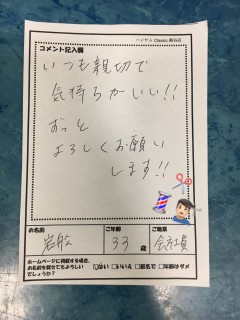 ハンサム Classic 熊谷店
コメント記入欄
いつも親切で
気持ちがいい!!
ずっと
よろしくお願い
します!!
お名前
岩舩
ご年齢
33 歳
ご職業
会社員
ホームページに掲載する場合、
お名前を載せてもよろしい
でしょうか?
はい □いいえ □匿名で □年齢はダメ